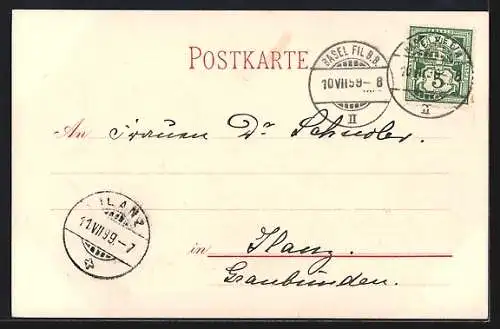 POSTKARTE
BASEL FIL. B.B.
10 VII 99 - 8
II
5
II
An Frauen Dr Schudler.
ILANZ
11.VII.99.-7
in Ilanz.
Graubünden.